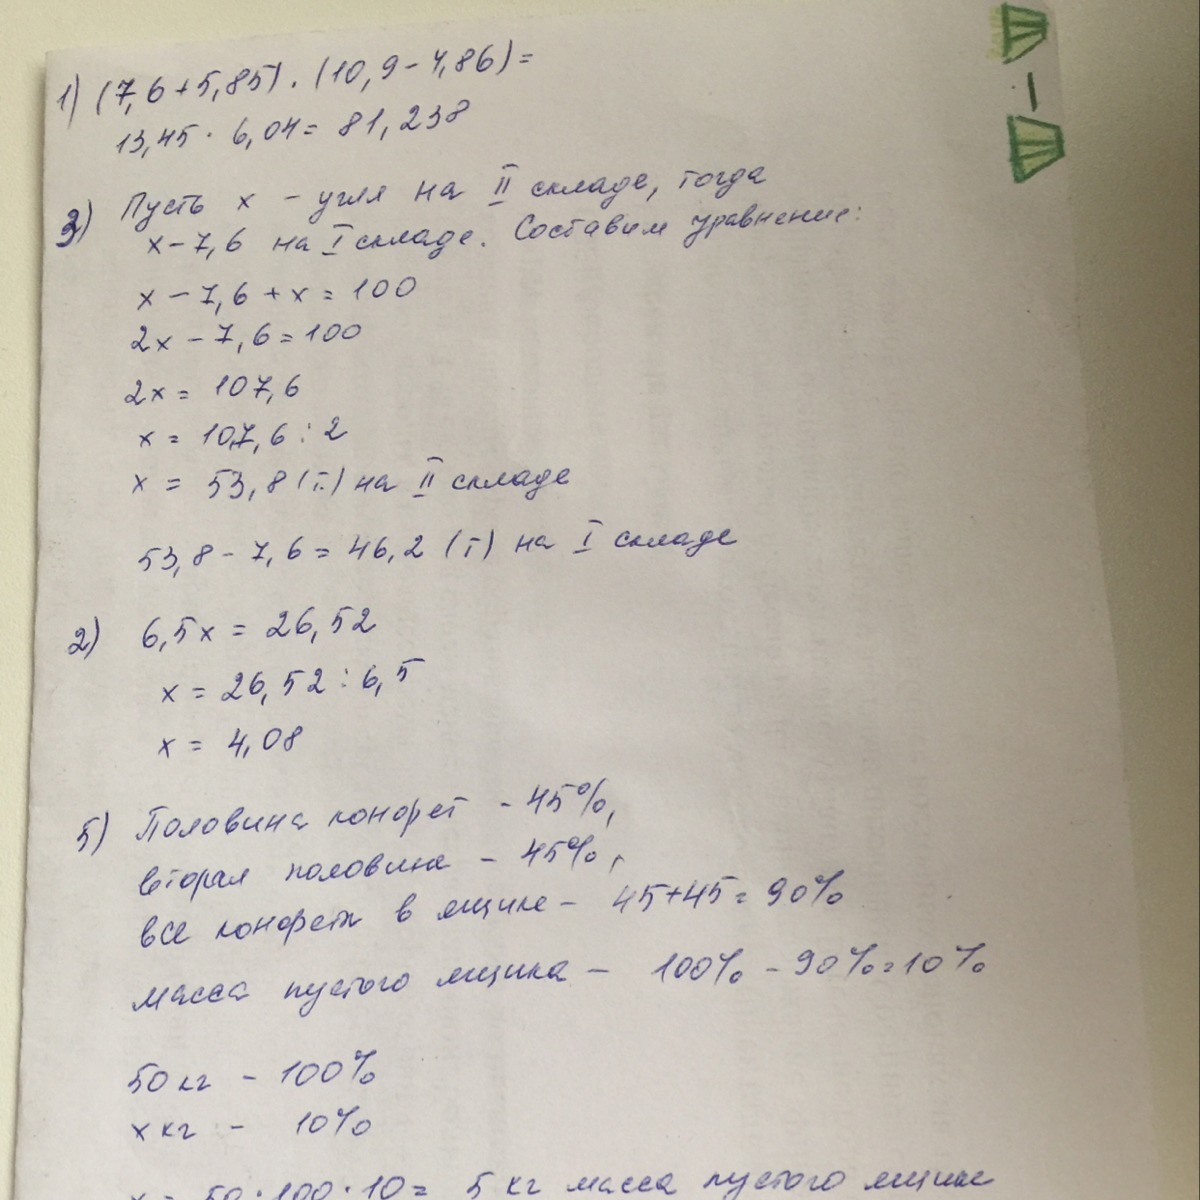 1) (7,6+5,85) · (10,9-4,86)=
13,45 · 6,04= 81,238
3) Пусть x - угля на II складе, тогда
x-7,6 на I складе. Составим уравнение:
x-7,6+x=100
2x-7,6=100
2x= 107,6
x= 107,6:2
x= 53,8 (т.) на II складе
53,8-7,6=46,2 (т) на I складе
2) 6,5x = 26,52
x= 26,52:6,5
x= 4,08
5) Половина конфет - 45%,
вторая половина - 45%,
все конфеты в ящике - 45+45=90%
масса пустого ящика - 100%-90%=10%
50кг - 100%
xкг - 10%
x= 50:100·10= 5 кг масса пустого ящика